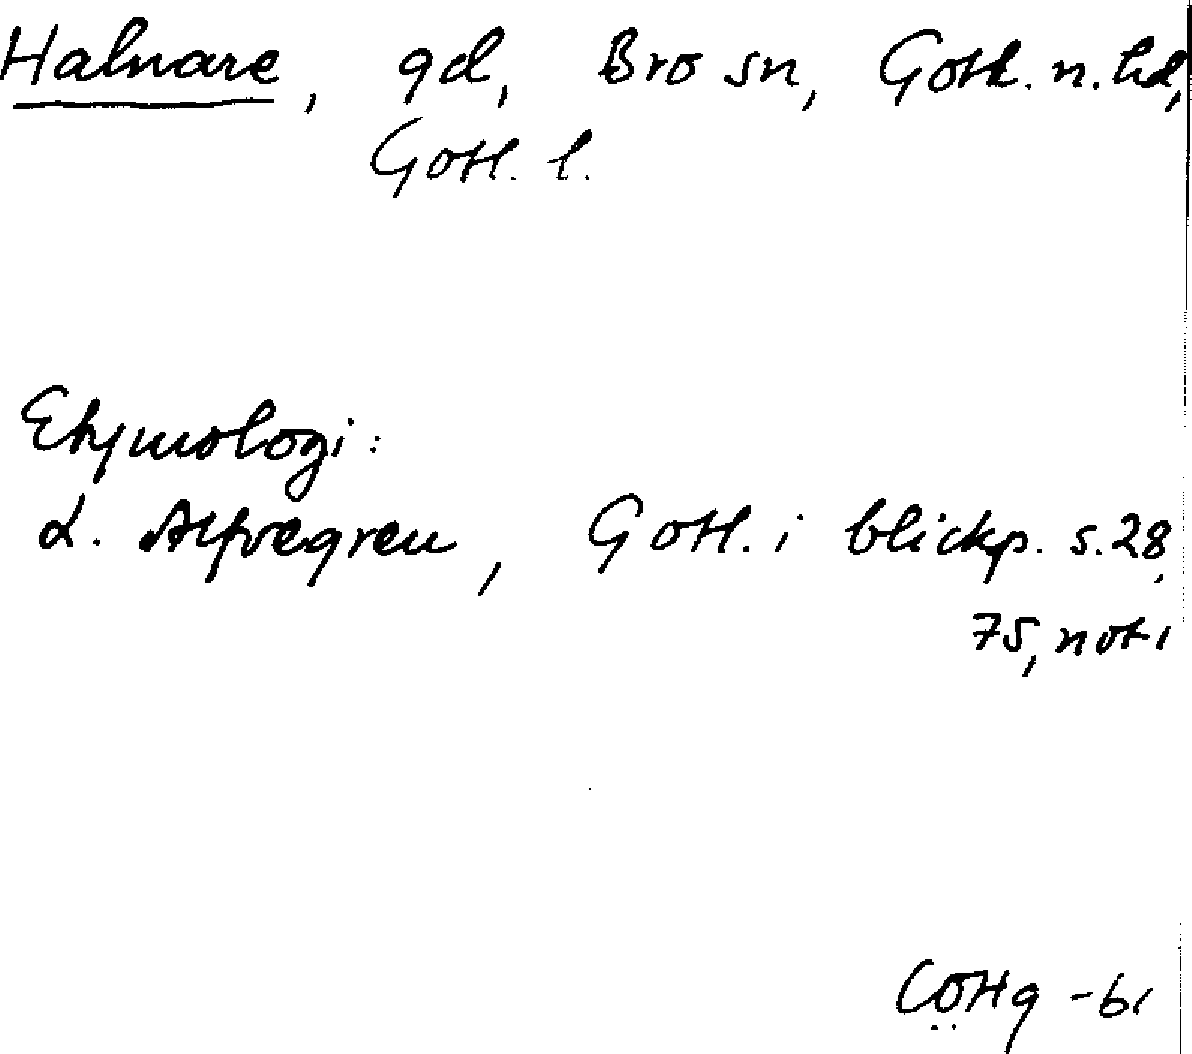 Halnare, gd, Bro sn, Gotl. n. hd,
Gotl. l.
Etymologi:
L. Alfvegren, Gotl. i blickp. s. 28,
75, not 1
-61